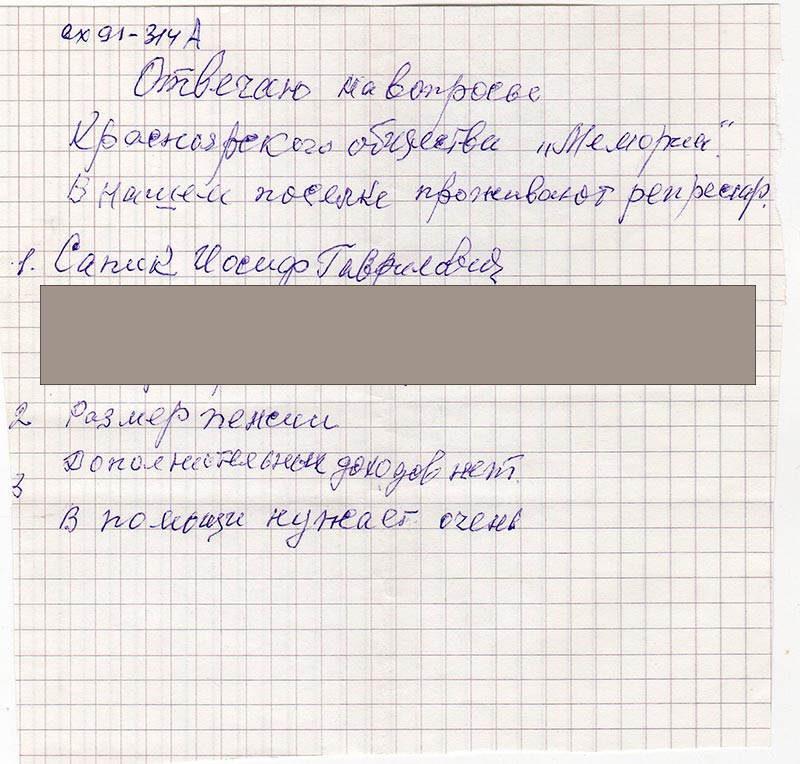 вх 91-314 А
Отвечаю на вопросы
Красноярского общества „Мемориал“.
В нашем поселке проживают репрессир.
1. Сапик Иосиф Гаврилович
2 Размер пенсии
Дополнительных доходов нет.
3
В помощи нуждает очень